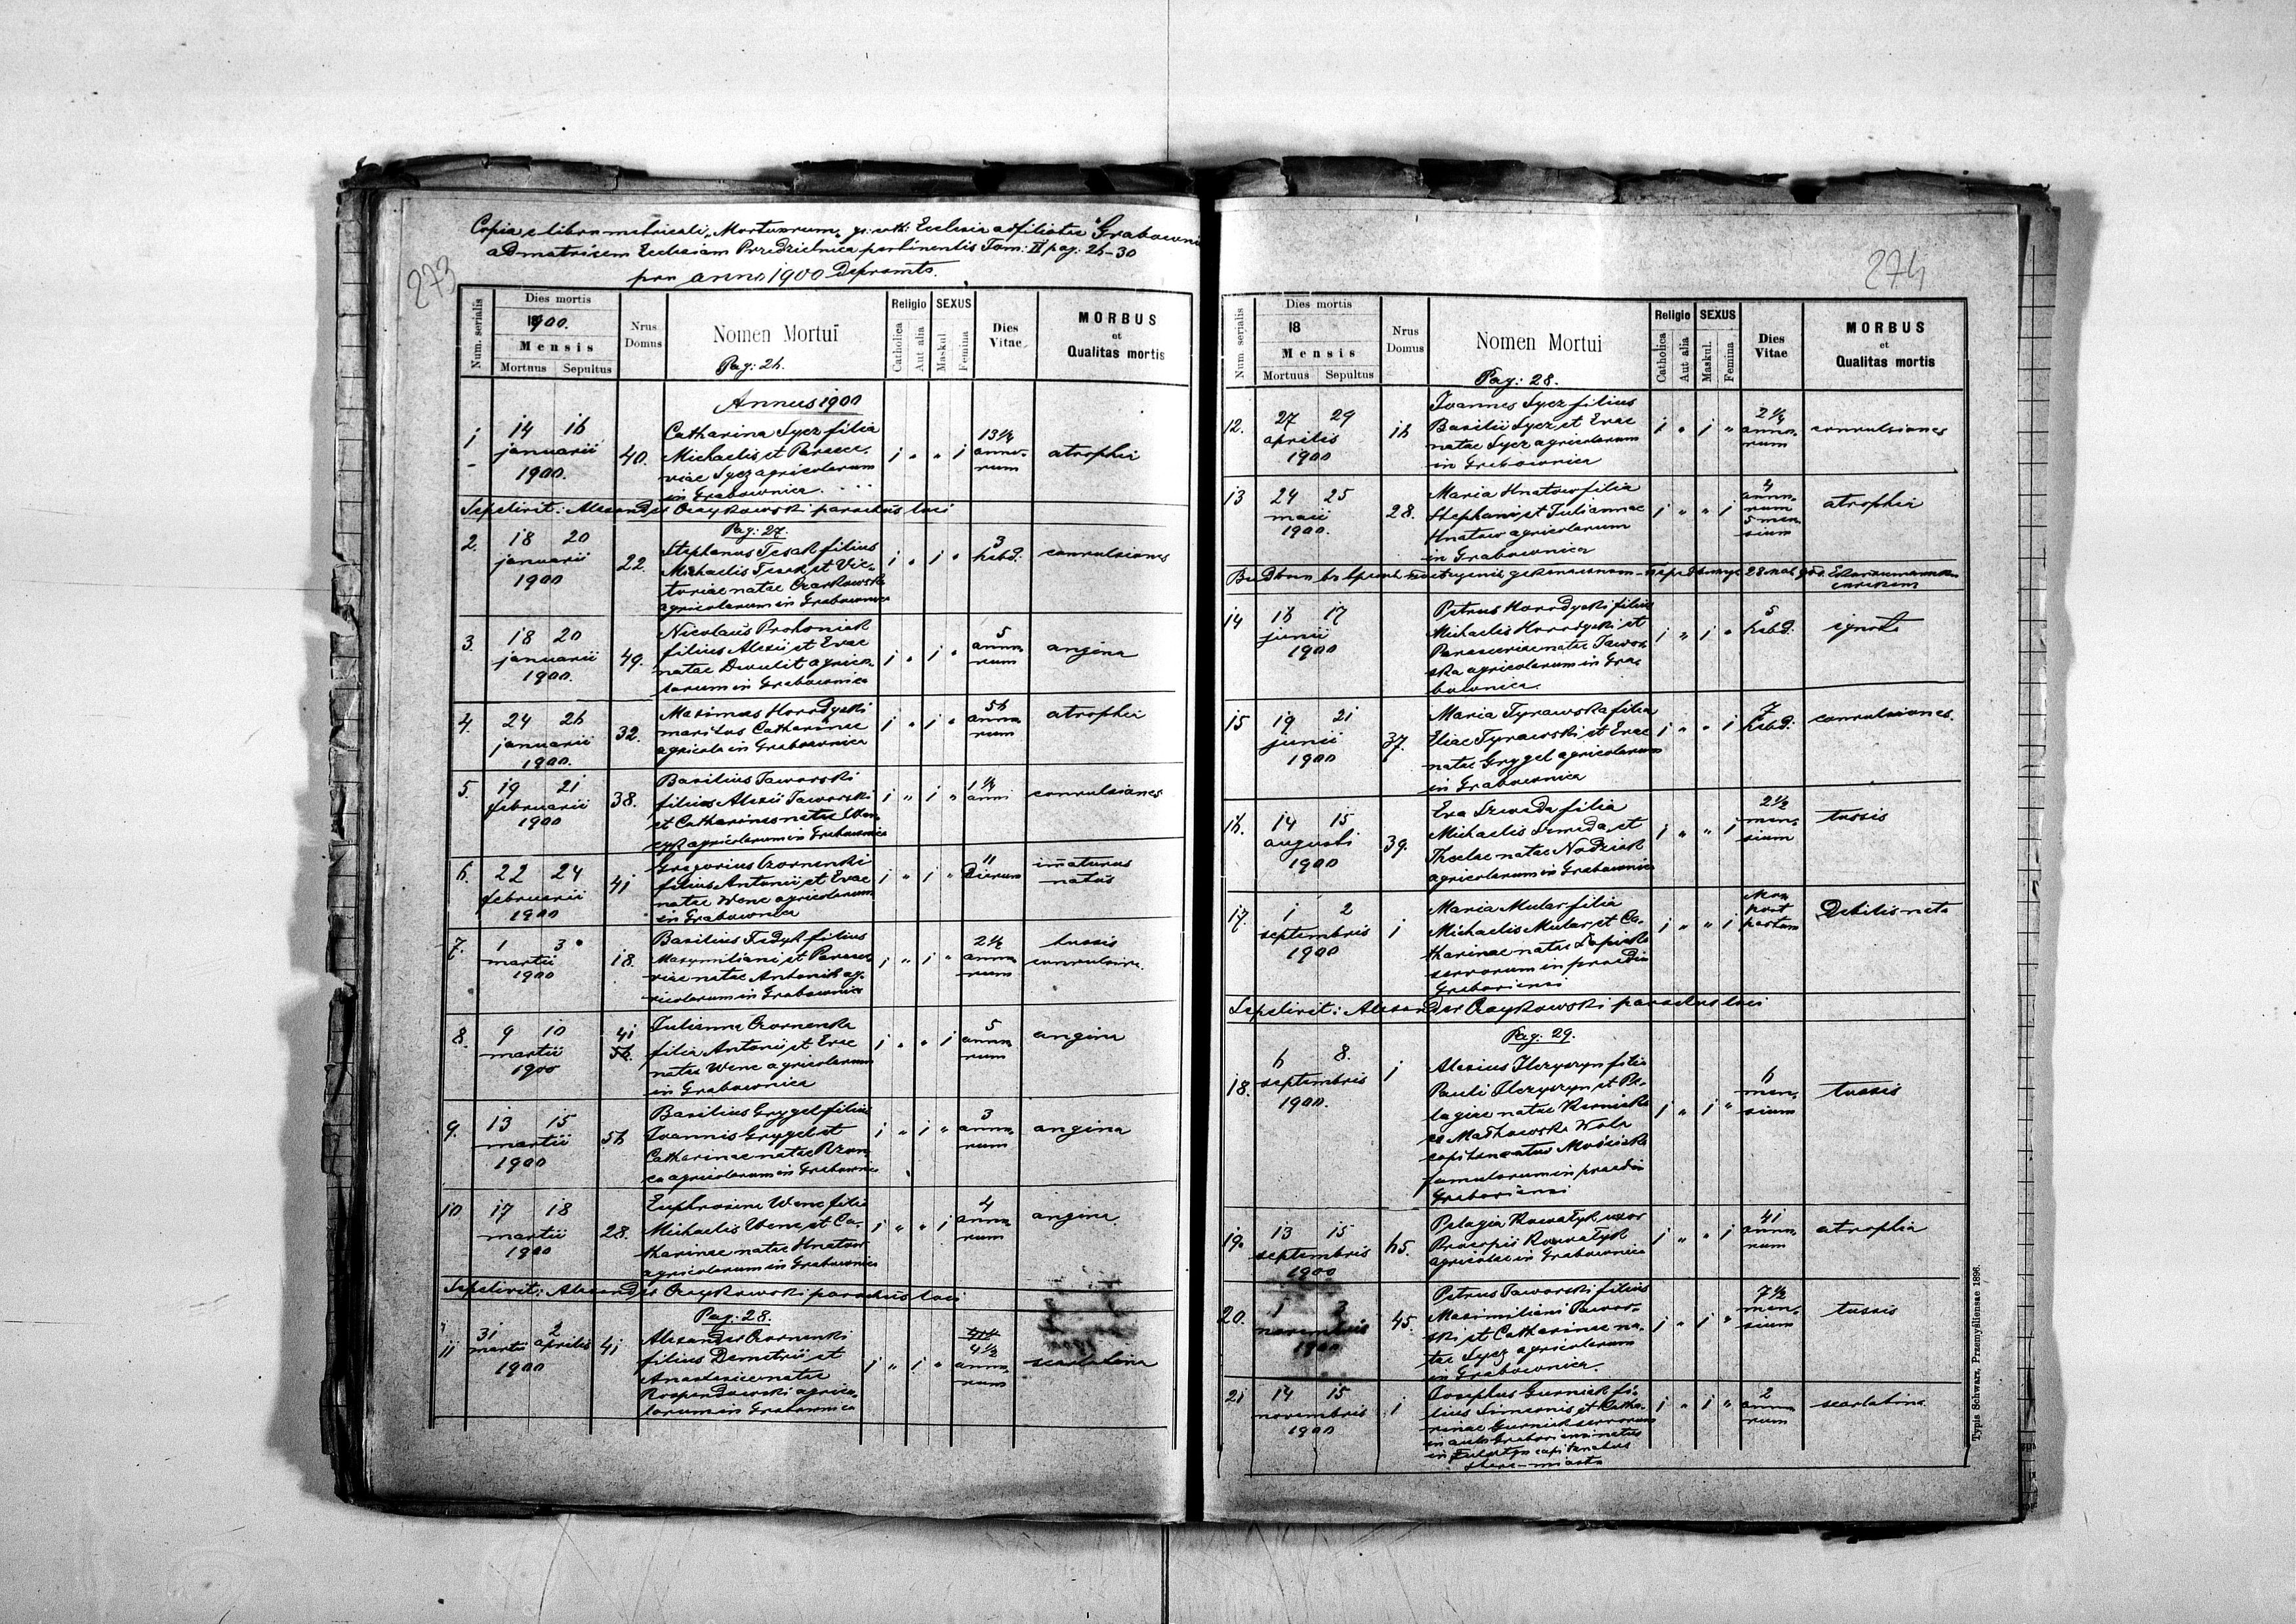 Copia e libro metricali „Mortuorum" gr: cath: Ecclesia adfiliatae Grabowni
ad matricem Ecclesiam Przedzielnica pertinentis Tom: II pag: 26-30
pro anno 1900 depromta.
273
Num. serialis
Dies mortis
1900.
Mensis
Mortuus Sepultus
Nrus Domus
Nomen Mortui
Pag: 26.
Religio
Catholica
Aut alia
SEXUS
Maskul
Femina
Dies Vitae
MORBUS
et
Qualitas mortis
Annus 1900
1 14 16 januarii 1900. 40. Catharina Sycz filia
Michaelis et Parasce-
viae Sycz agricolarum
in Grabownica. 1 „ „ 1 13½ anno-rum atrophia
Sepelivit: Alexander Czaykowski parochus loci
Pag: 27.
2. 18 20 januarii 1900 22. Stephanus Tesak filius
Michaelis Tesak et Vic-
toriae natae Czarkowska
agricolarum in Grabownica 1 „ 1 „ 3 hebd. convulsiones
3. 18 20 januarii 1900. 49. Nicolaus Prohoniak
filius Alexii et Evae
natae Devulit agrico-
larum in Grabownica 1 „ 1 „ 5 anno-rum angina
4. 24 26 januarii 1900. 32. Maximus Horodyski
maritus Catharinae
agricola in Grabownica 1 „ 1 „ 56 anno-rum atrophia
5. 19 21 februarii 1900 38. Basilius Jaworski
filius Alexii Jaworski
et Catharinae natae
agricolarum in Grabownica 1 „ 1 „ 1½ anni convulsiones
6. 22 24 februarii 1900 41 Gregorius Czornenki
filius Antonii et Evae
natae Wenc agricolarum
in Grabownica 1 „ 1 „ 11 dierum imaturus natus
7. 1 3 martii 1900 18. Basilius Fedyk filius
Maxymiliani et Parasce-
viae natae Antonik ag-
ricolarum in Grabownica 1 „ 1 „ 2½ anno-rum tussis convulsiva.
8. 9 10 martii 1900 41 56. Julianna Czornenka
filia Antonii et Evae
natae Wenc agricolarum
in Grabownica 1 „ „ 1 5 anno-rum angina
9. 13 15 martii 1900 56 Basilius Grygel filius
Joannis Grygel et
Catharinae natae
agricolarum in Grabownica 1 „ 1 „ 3 anno-rum angina
10 17 18 martii 1900 28. Euphrosina Wenc filia
Michaelis Wenc et Ca-
tharinae natae Hnatow
agricolarum in Grabownica 1 „ „ 1 4 anno-rum angina.
Sepelivit: Alexander Czaykowski parochus loci
Pag: 28.
11 31 martii 2 aprilis 1900 41 Alexander Czornenki
filius Demetrii et
Anastasiae natae
agrico-
larum in Grabownica 1 „ 1 „ 4½ anno-rum scarlatina
274
Num. serialis
Dies mortis
18
Mensis
Mortuus Sepultus
Nrus Domus
Nomen Mortui
Pag: 28.
Religio
Catholica
Aut alia
SEXUS
Maskul.
Femina
Dies Vitae
MORBUS
et
Qualitas mortis
12. 27 29 aprilis 1900 16 Joannes Sycz filius
Basilii Sycz et Evae
natae Sycz agricolarum
in Grabownica 1 „ 1 „ 2¼ anno-rum convulsiones
13 24 25 maii 1900. 28. Maria Hnatow filia
Stephani et Juliannae
Hnatow agricolarum
in Grabownica 1 „ „ 1 4 anno-rum 5 men-sium atrophia
14 16 17 junii 1900 Petrus Horodyski filius
Michaelis Horodyski et
Parasceviae natae Jawor-
ska agricolarum in Gra-
bownica. 1 „ 1 „ 5 hebd. ignota
15 19 21 junii 1900 37. Maria Tyrawska filia
Eliae Tyrawski et Evae
natae Grygel agricolarum
in Grabownica 1 „ „ 1 7 hebd. convulsiones.
16. 14 15 augusti 1900 39. Eva Szweda filia
Michaelis Szweda et
Theclae natae Nodziak
agricolarum in Grabownica 1 „ „ 1 2½ men-sium tussis
17. 1 2 septembris 1900 1 Maria Mular filia
Michaelis Mular et Ca-
tharinae natae
servorum in praedio
Graboviensi 1 „ „ 1 mox post partum Debilis nata
Sepelivit: Alexander Czaykowski parochus loci
Pag: 29.
18. 6 8. septembris 1900. 1 Alexius filius
Pauli et Pe-
lagiae natae
ex Małnowska Wola
capitaneatus Mościska
famulorum in praedio
Graboviensi 1 „ 1 „ 6 men-sium tussis
19. 13 15 septembris 1900 65. Pelagia Kowalyk uxor
Procopii Kowalyk
agricolae in Grabownica 1 „ „ 1 41 anno-rum atrophia
20. 1 3 novembris 1900 45. Petrus Jaworski filius
Maximiliani Jawor-
ski et Catharinae na-
tae Sycz agricolarum
in Grabownica. 1 „ 1 „ 7½ men-sium tussis
21 14 15 novembris 1900 1 Josephus Gurniak fi-
lius Simeonis et Catha-
rinae Gurniak servorum
in aula Graboviensi natus
in capitaneatus
Stare-miasto 1 „ 1 „ 2 anno-rum scarlatina
Typis Schwarz, Przemyśliensae 1896.